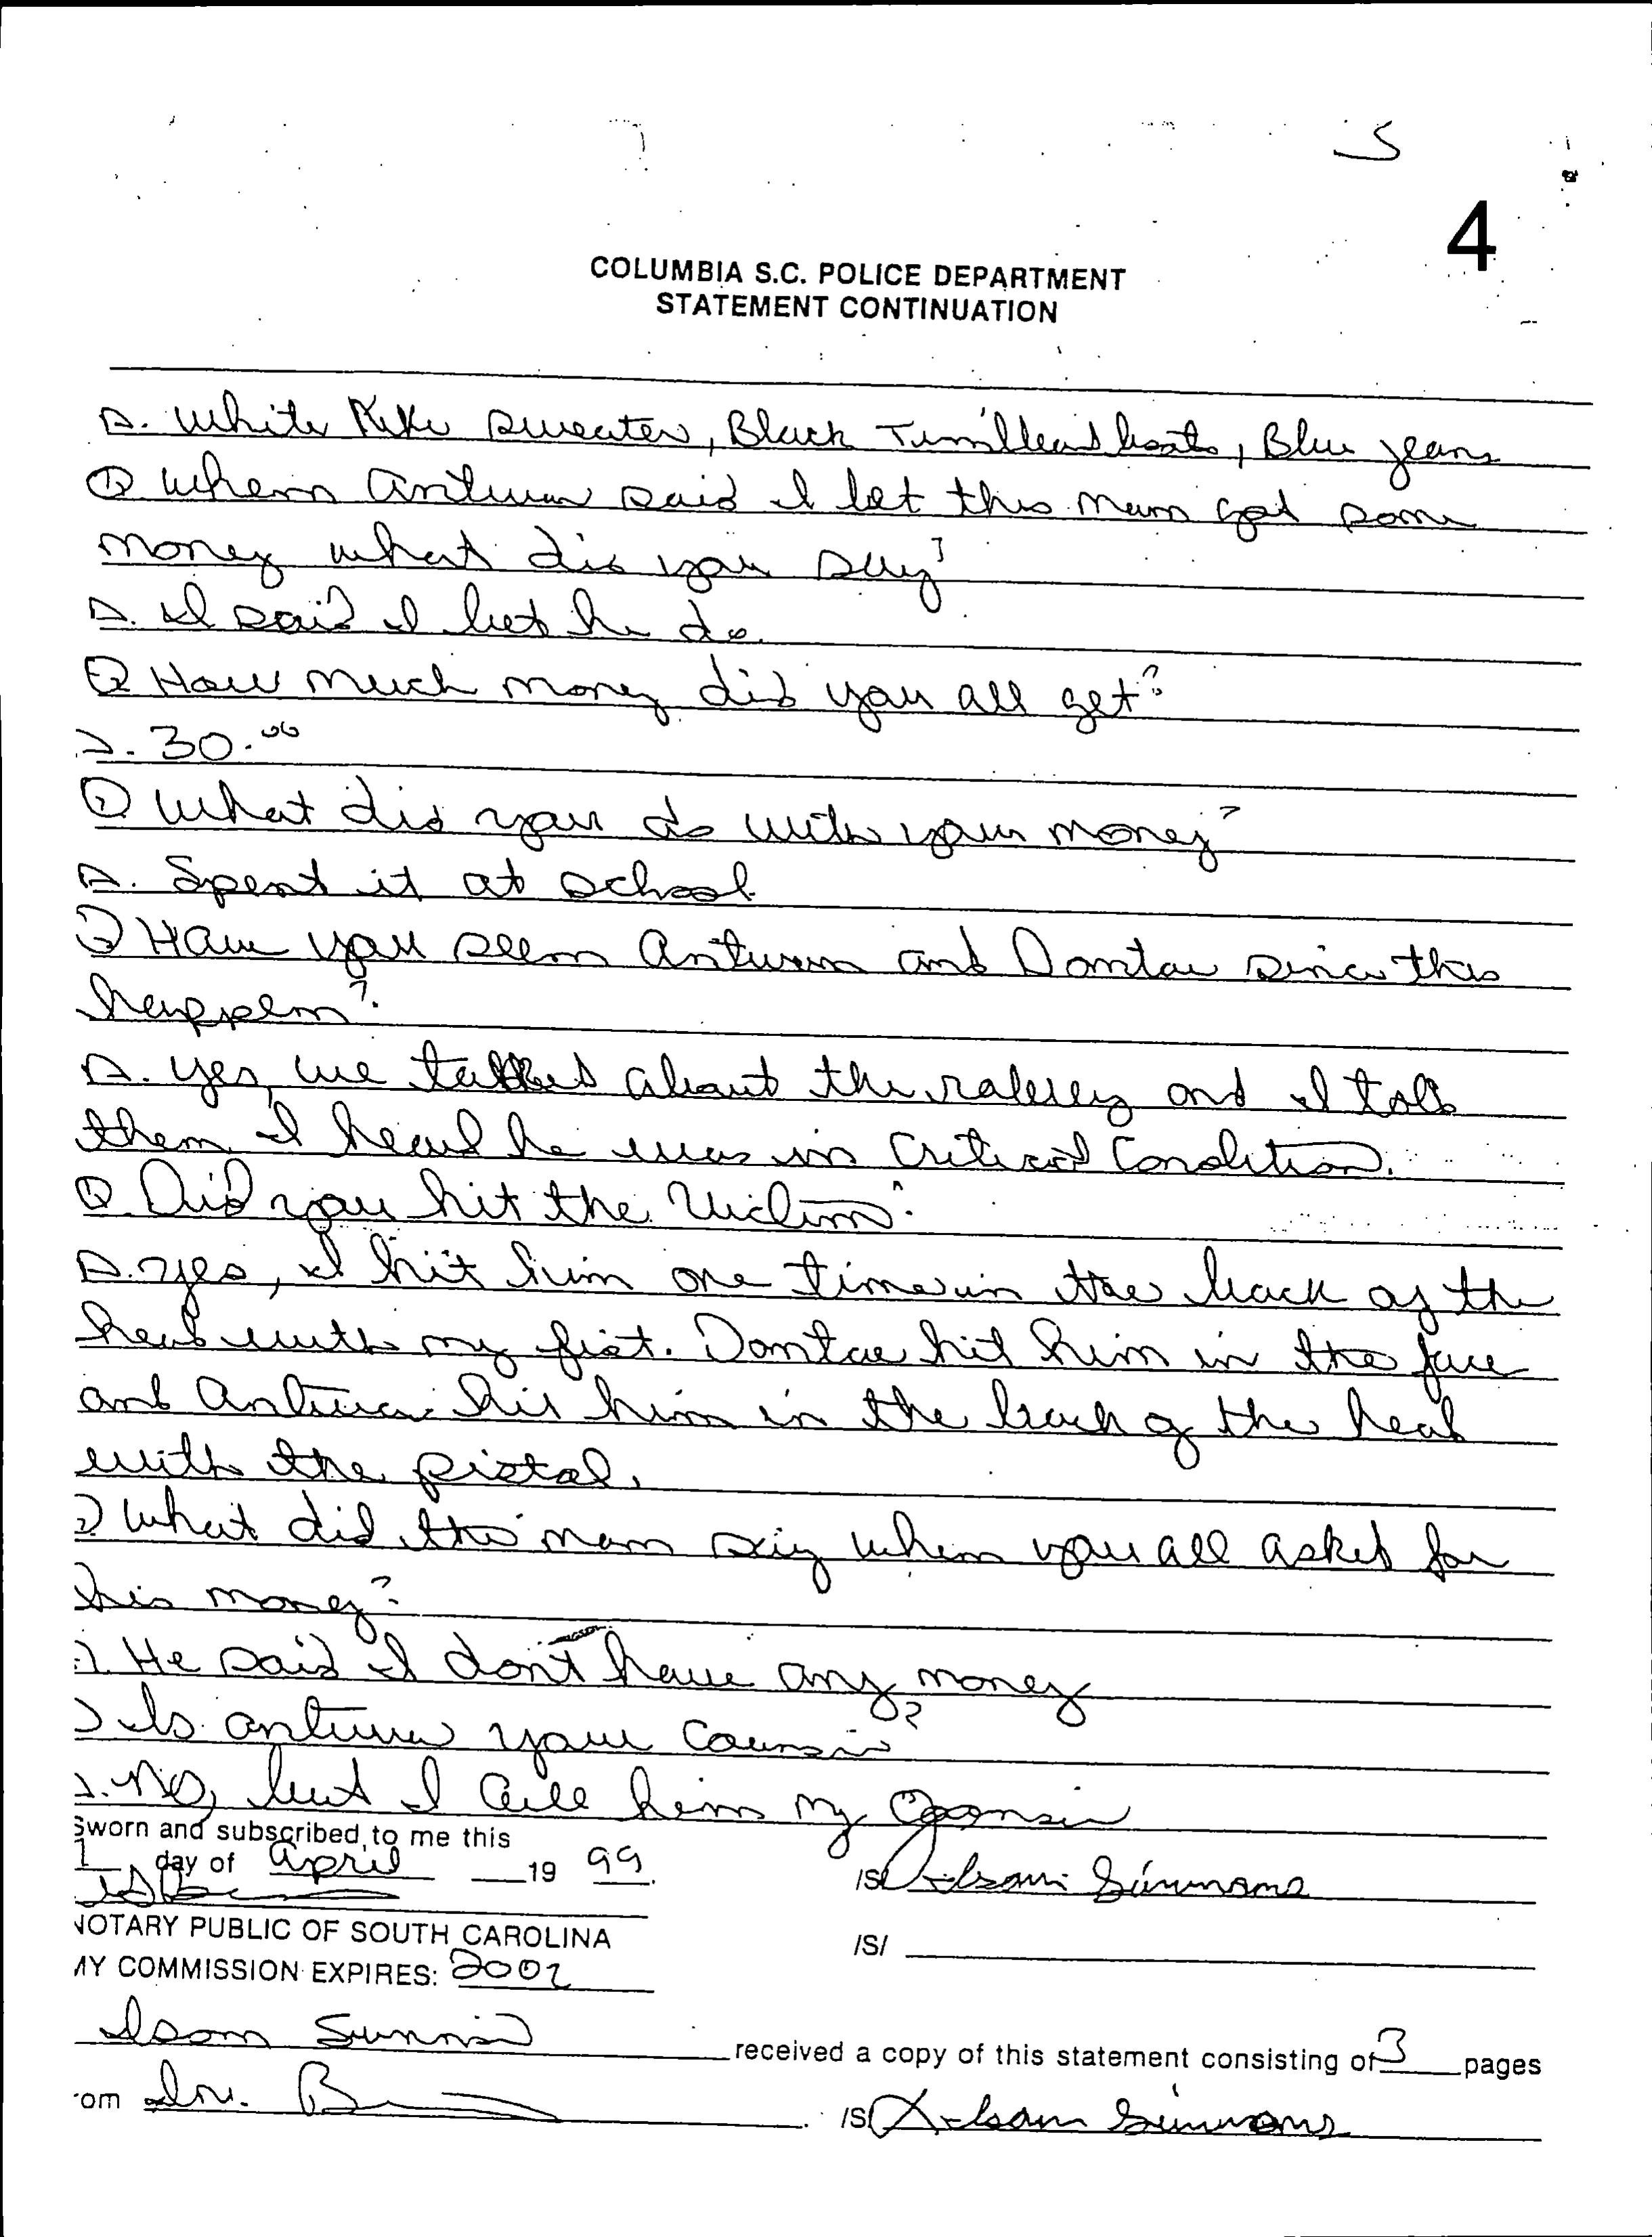 S
4
COLUMBIA S.C. POLICE DEPARTMENT
STATEMENT CONTINUATION
A. White Nike sweater, Black Timberland boots, Blue jeans
Q When Antwan said I bet this man got some
money what did you say?
A. I said I bet he do.
Q How much money did you all get?
A. 30.00
Q What did you do with your money?
A. Spent it at school
Q Have you seen Antwan and Dontae since this
happen?
A. Yes, we talked about the robbery and I told
them I heard he was in Critical Condition.
Q. Did you hit the Victim?
A. Yes, I hit him one time in the back of the
head with my fist. Dontae hit him in the face
and Antwan hit him in the back of the head
with the pistol.
Q What did the man say when you all asked for
his money?
A. He said I don't have any money
Q Is Antwan your Cousin?
A. No, but I Call him my Cousin
Sworn and subscribed to me this
1 day of April 19 99.
NOTARY PUBLIC OF SOUTH CAROLINA
MY COMMISSION EXPIRES: 2002
/S/ Simmons
/S/
Isom received a copy of this statement consisting of 3 pages
from Inv.
/S/ Simmons